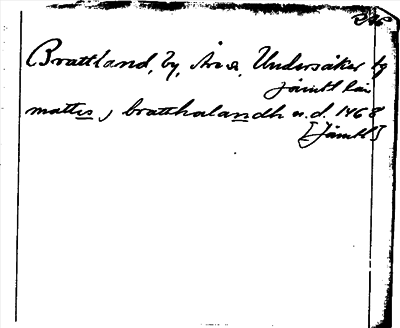 Brattland, by, Åre s, Undersåker by
jämtl län
mattes, bratthalandh u.d. 1468
[Jämtl]